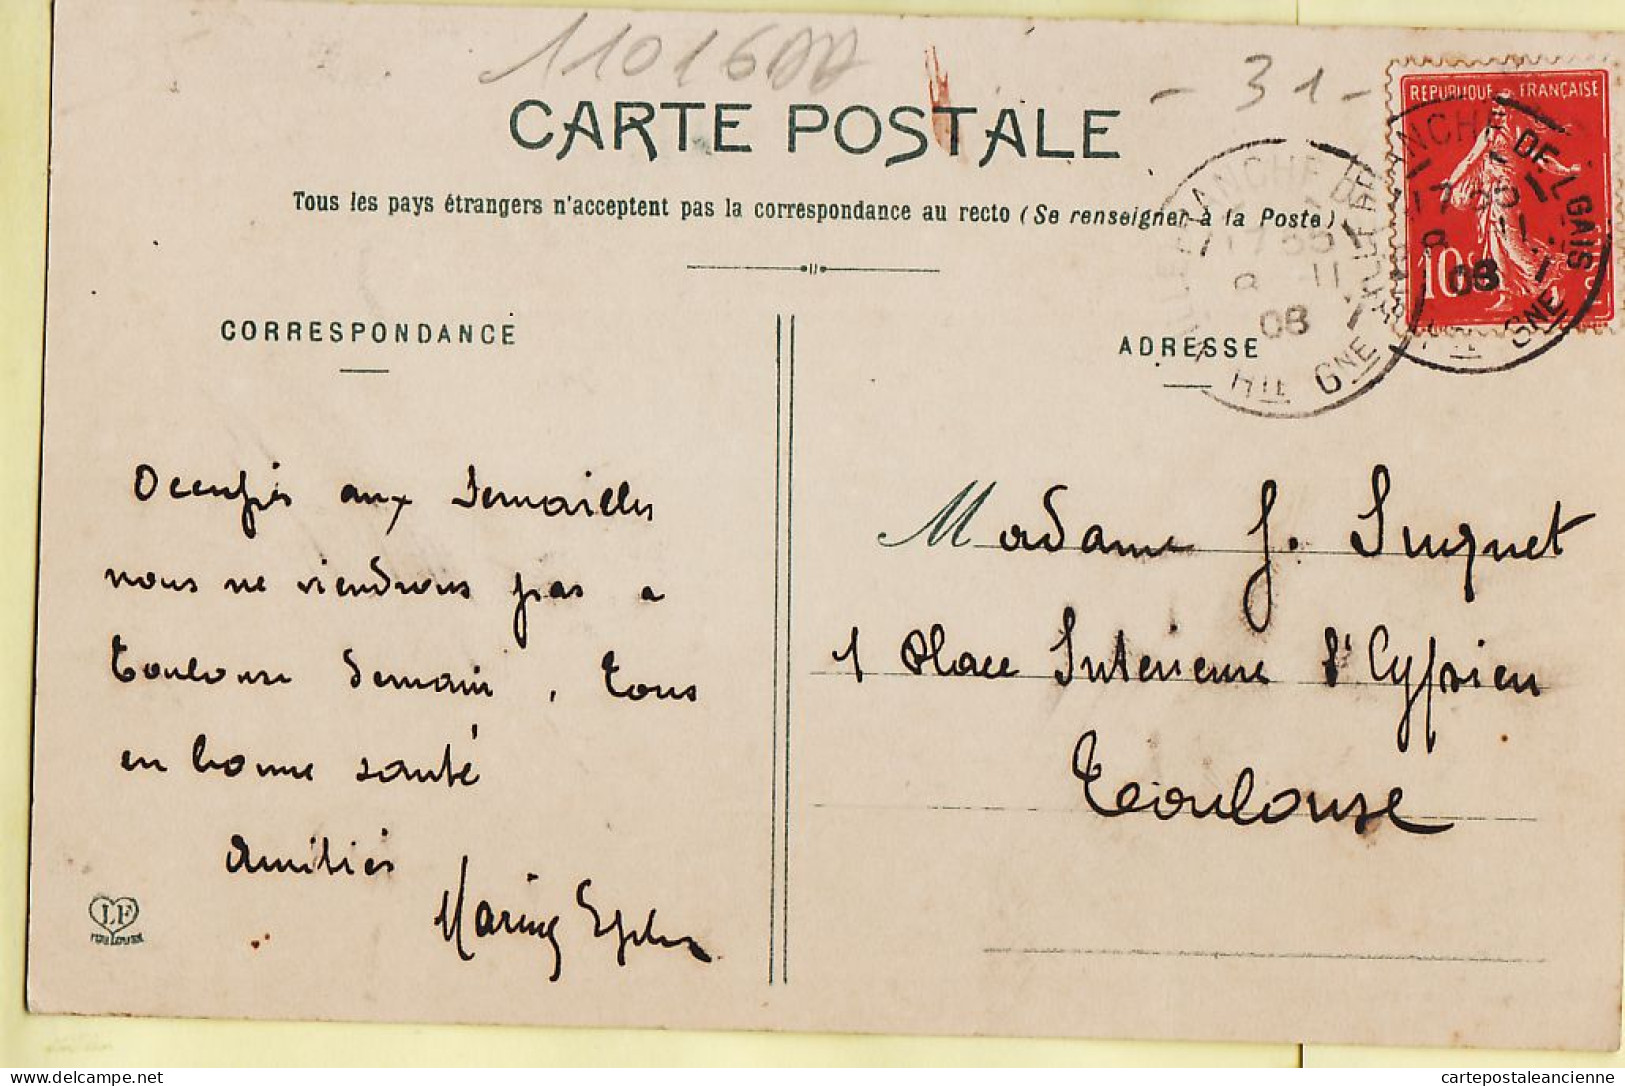 11016
- 31 -
CARTE POSTALE
Tous les pays étrangers n'acceptent pas la correspondance au recto (Se renseigner à la Poste)
CORRESPONDANCE
Occupés aux Semailles
nous ne viendrons pas a
Toulouse Demain, Tous
en bonne santé
Amitiés
LF
TOULOUSE
ADRESSE
Madame J. Suquet
1 Place Interieure St Cyprien
Toulouse
REPUBLIQUE FRANÇAISE
10c
DE LGAIS
HTE GNE
17 35
8 11
08
delcampe.net
cartepostaleancienne